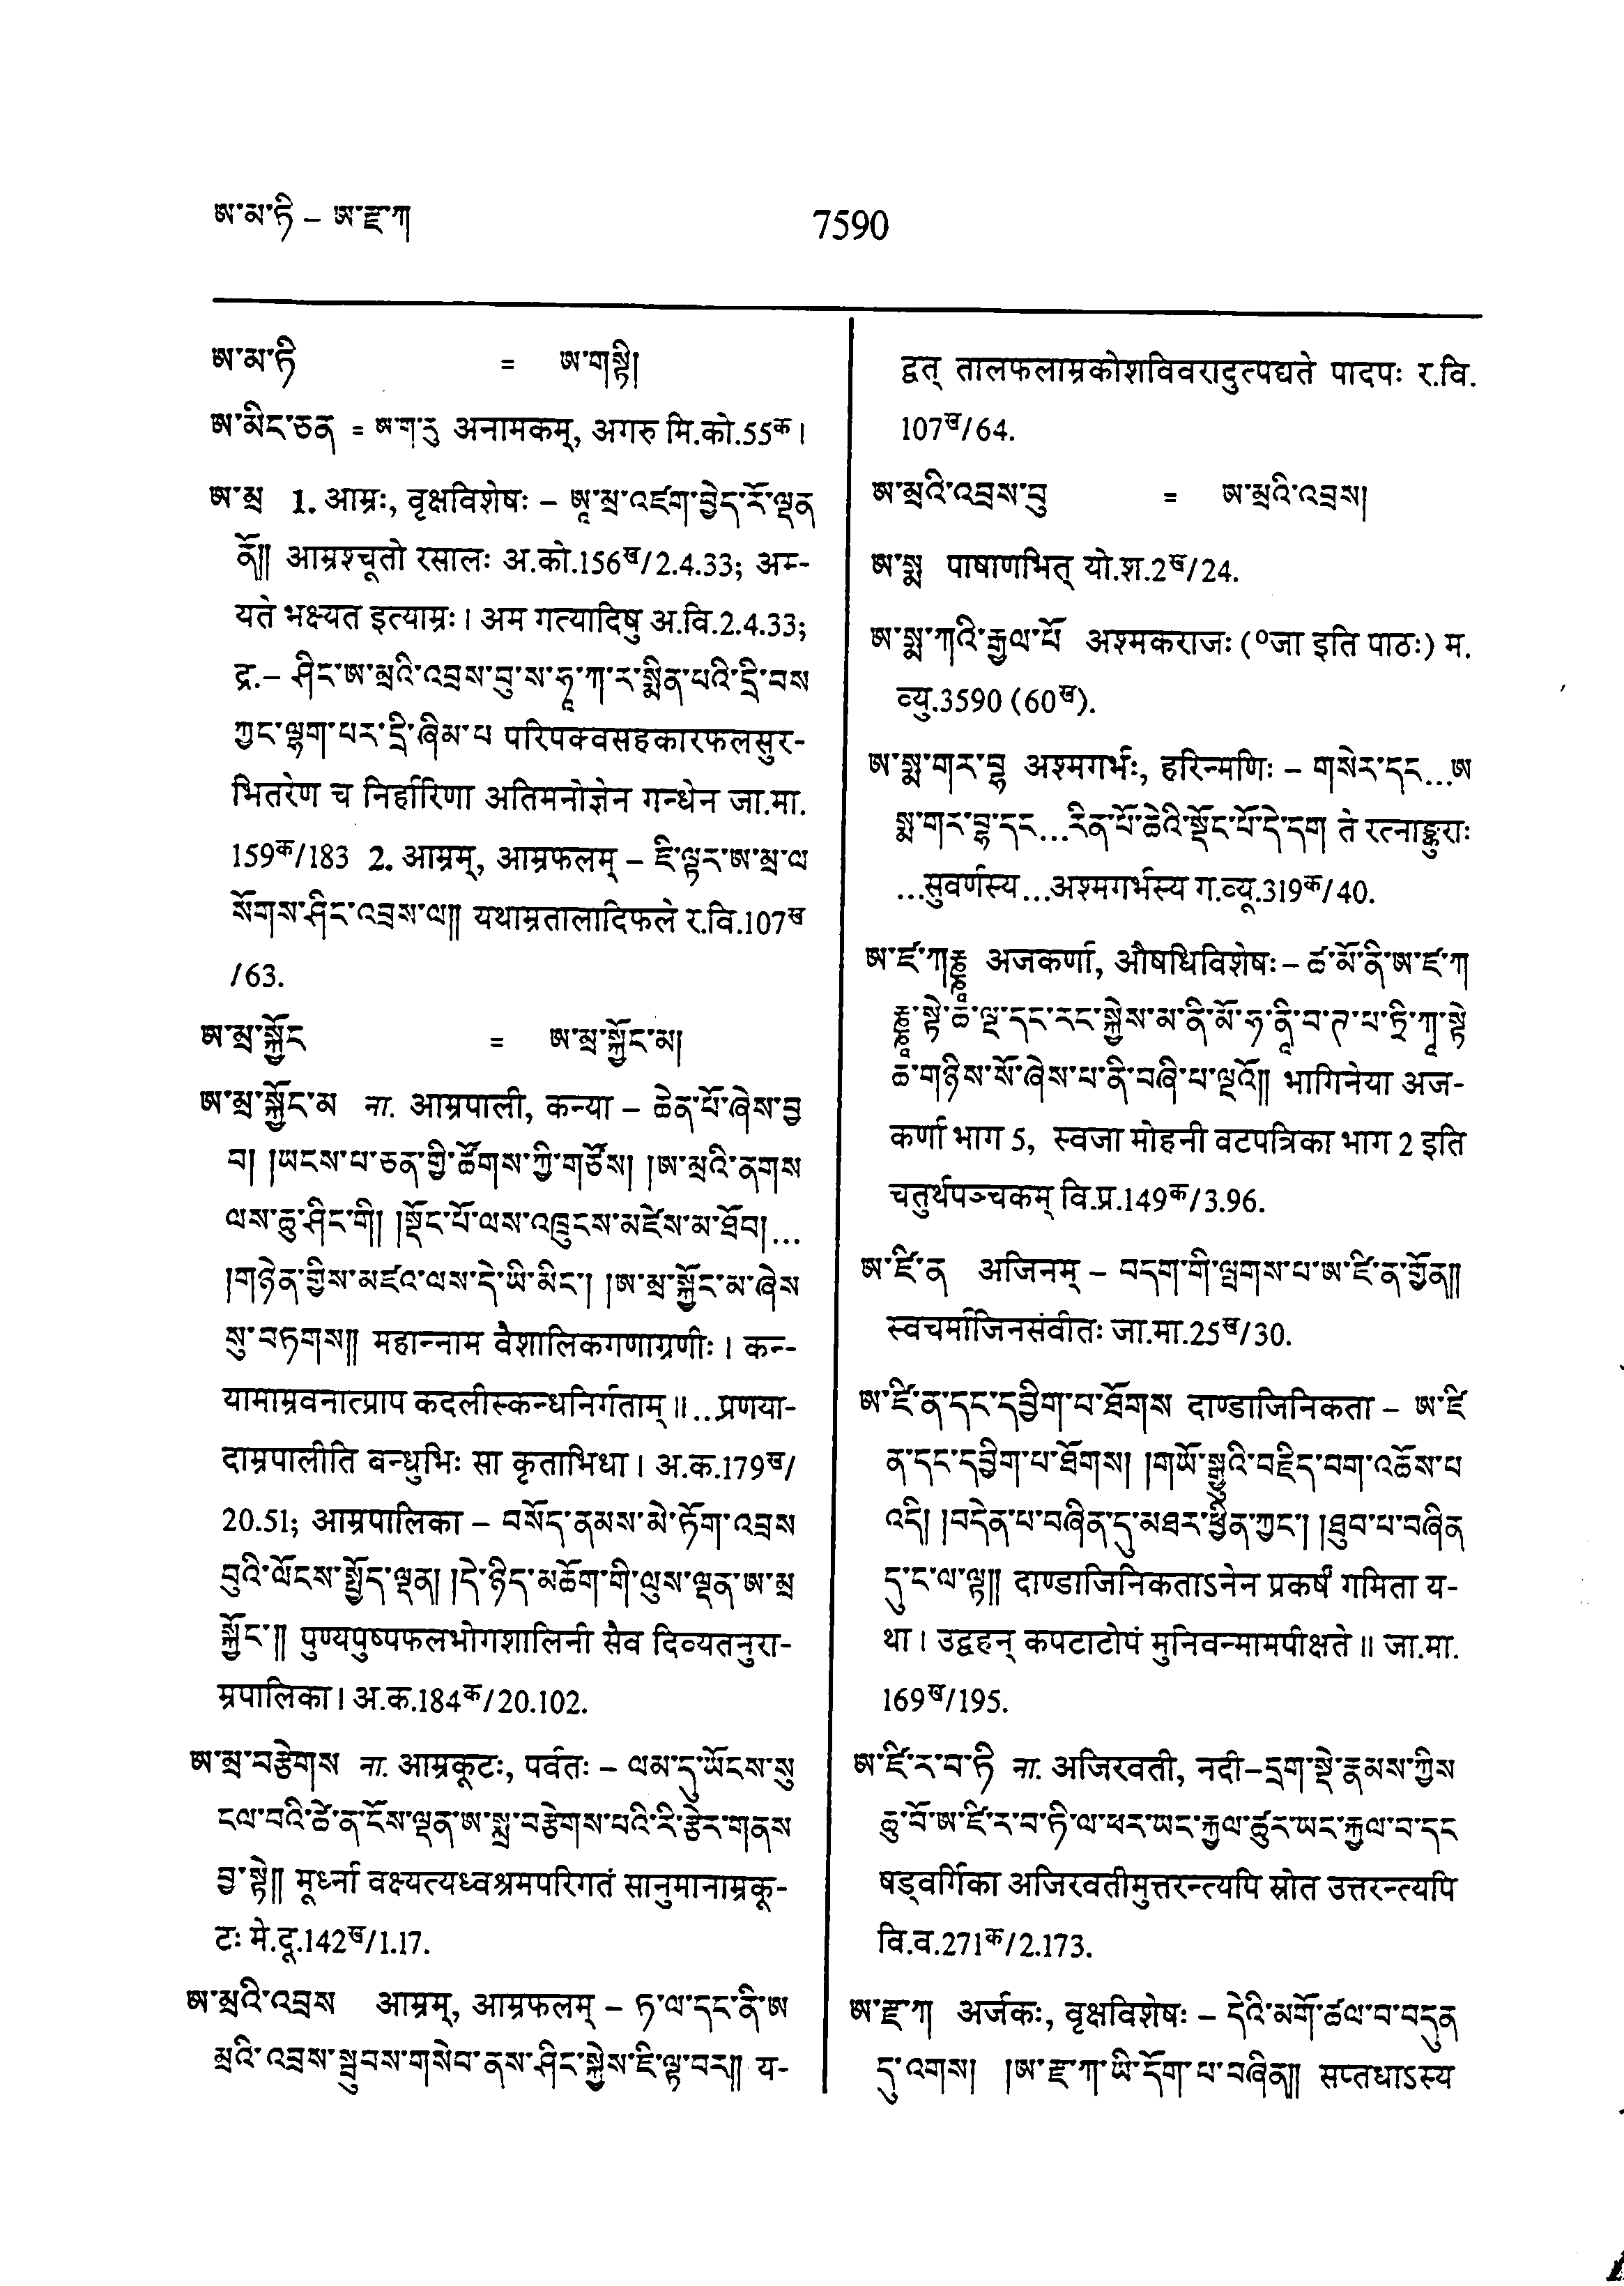 ཨ་མ་ཏི – ཨ་རྫ་ཀ
7590
ཨ་མ་ཏི = ཨ་གསྟི།
ཨ་མིང་ཅན = ཨ་ག་རུ अनामकम्, अगरु मि.को.55क।
ཨ་མྲ 1. आम्रः, वृक्षविशेषः – ཨཱ་མྲ་འཛག་བྱེད་རོ་ལྡན
ནོ།། आम्रश्चूतो रसालः अ.को.156ख/2.4.33; अम्-
यते भक्ष्यत इत्याम्रः। अम गत्यादिषु अ.वि.2.4.33;
द्र.– ཤིང་ཨ་མྲའི་འབྲས་བུ་ས་ཧཱ་ཀ་ར་སྨིན་པའི་དྲི་བས
ཀྱང་ལྷག་པར་དྲི་ཞིམ་པ परिपक्वसहकारफलसुर-
भितरेण च निर्हारिणा अतिमनोज्ञेन गन्धेन जा.मा.
159क/183 2. आम्रम्, आम्रफलम् – ཇི་ལྟར་ཨ་མྲ་ལ
སོགས་ཤིང་འབྲས་ལ།། यथाम्रतालादिफले र.वि.107ख
/63.
ཨ་མྲ་སྐྱོང = ཨ་མྲ་སྐྱོང་མ།
ཨ་མྲ་སྐྱོང་མ ना. आम्रपाली, कन्या – ཆེན་པོ་ཞེས་བྱ
བ། །ཡངས་པ་ཅན་གྱི་ཚོགས་ཀྱི་གཙོས། །ཨ་མྲའི་ནགས
ལས་ཆུ་ཤིང་གི། །སྡོང་པོ་ལས་འཁྲུངས་མཛེས་མ་ཐོབ།...
།གཉེན་གྱིས་མཛའ་ལས་དེ་ཡི་མིང་། །ཨ་མྲ་སྐྱོང་མ་ཞེས
སུ་བཏགས།། महान्नाम वैशालिकगणाग्रणीः। कन्-
यामाम्रवनात्प्राप कदलीस्कन्धनिर्गताम्॥...प्रणया-
दाम्रपालीति बन्धुभिः सा कृताभिधा। अ.क.179ख/
20.51; आम्रपालिका – བསོད་ནམས་མེ་ཏོག་འབྲས
བུའི་ལོངས་སྤྱོད་ལྡན། །དེ་ཉིད་མཆོག་གི་ལུས་ལྡན་ཨ་མྲ
སྐྱོང་།། पुण्यपुष्पफलभोगशालिनी सैव दिव्यतनुरा-
म्रपालिका। अ.क.184क/20.102.
ཨ་མྲ་བརྩེགས ना. आम्रकूटः, पर्वतः – ལམ་དུ་ཡོངས་སུ
ངལ་བའི་ཚེ་ན་ངོས་ལྡན་ཨ་སྨྲ་བརྩེགས་པའི་རི་རྩེར་གནས
བྱ་སྟེ།། मूर्ध्ना वक्ष्यत्यध्वश्रमपरिगतं सानुमानाम्रकू-
टः मे.दू.142ख/1.17.
ཨ་མྲའི་འབྲས आम्रम्, आम्रफलम् – ཏ་ལ་དང་ནི་ཨ
མྲའི་འབྲས་སྦུབས་གསེབ་ནས་ཤིང་སྐྱེས་ཇི་ལྟ་བར།། य-
द्वत् तालफलाम्रकोशविवरादुत्पद्यते पादपः र.वि.
107ख/64.
ཨ་མྲའི་འབྲས་བུ = ཨ་མྲའི་འབྲས།
ཨ་སྨ पाषाणभित् यो.श.2ख/24.
ཨ་སྨ་ཀའི་རྒྱལ་པོ अश्मकराजः (०जा इति पाठः) म.
व्यु.3590 (60ख).
ཨ་སྨ་གར་བྷ अश्मगर्भः, हरिन्मणिः – གསེར་དང...ཨ
སྨ་གར་བྷ་དང...རིན་པོ་ཆེའི་སྡོང་པོ་དེ་དག ते रत्नाङ्कुराः
...सुवर्णस्य...अश्मगर्भस्य ग.व्यू.319क/40.
ཨ་ཛ་ཀརྞཱ अजकर्णा, औषधिविशेषः – ཚ་མོ་ནི་ཨ་ཛ་ཀ
རྞཱ་སྟེ་ཆ་ལྔ་དང་རང་སྐྱེས་མ་ནི་མོ་ཧ་ནཱི་བ་ཊ་པ་ཏྲི་ཀཱ་སྟེ
ཆ་གཉིས་སོ་ཞེས་པ་ནི་བཞི་པ་ལྔའོ།། भागिनेया अज-
कर्णा भाग 5, स्वजा मोहनी वटपत्रिका भाग 2 इति
चतुर्थपञ्चकम् वि.प्र.149क/3.96.
ཨ་ཛི་ན अजिनम् – བདག་གི་ལྤགས་པ་ཨ་ཛི་ན་གྱོན།།
स्वचर्माजिनसंवीतः जा.मा.25ख/30.
ཨ་ཛི་ན་དང་དབྱིག་པ་ཐོགས दाण्डाजिनिकता – ཨ་ཛི
ན་དང་དབྱིག་པ་ཐོགས། །གཡོ་སྒྱུའི་བརྫིད་བག་འཆོས་པ
འདི། །བདེན་པ་བཞིན་དུ་མཐར་ཕྱིན་ཀྱང་། །ཐུབ་པ་བཞིན
དུ་ང་ལ་ལྟ།། दाण्डाजिनिकताऽनेन प्रकर्षं गमिता य-
था। उद्वहन् कपटाटोपं मुनिवन्मामपीक्षते॥ जा.मा.
169ख/195.
ཨ་ཛི་ར་བ་ཏི ना. अजिरवती, नदी–དྲུག་སྡེ་རྣམས་ཀྱིས
ཆུ་བོ་ཨ་ཛི་ར་བ་ཏི་ལ་ཕར་ཡང་རྐྱལ་ཚུར་ཡང་རྐྱལ་བ་དང
षड्वर्गिका अजिरवतीमुत्तरन्त्यपि स्रोत उत्तरन्त्यपि
वि.व.271क/2.173.
ཨ་རྫ་ཀ अर्जकः, वृक्षविशेषः – དེའི་མགོ་ཚལ་བ་བདུན
དུ་འགས། །ཨ་རྫ་ཀ་ཡི་དོག་པ་བཞིན།། सप्तधाऽस्य